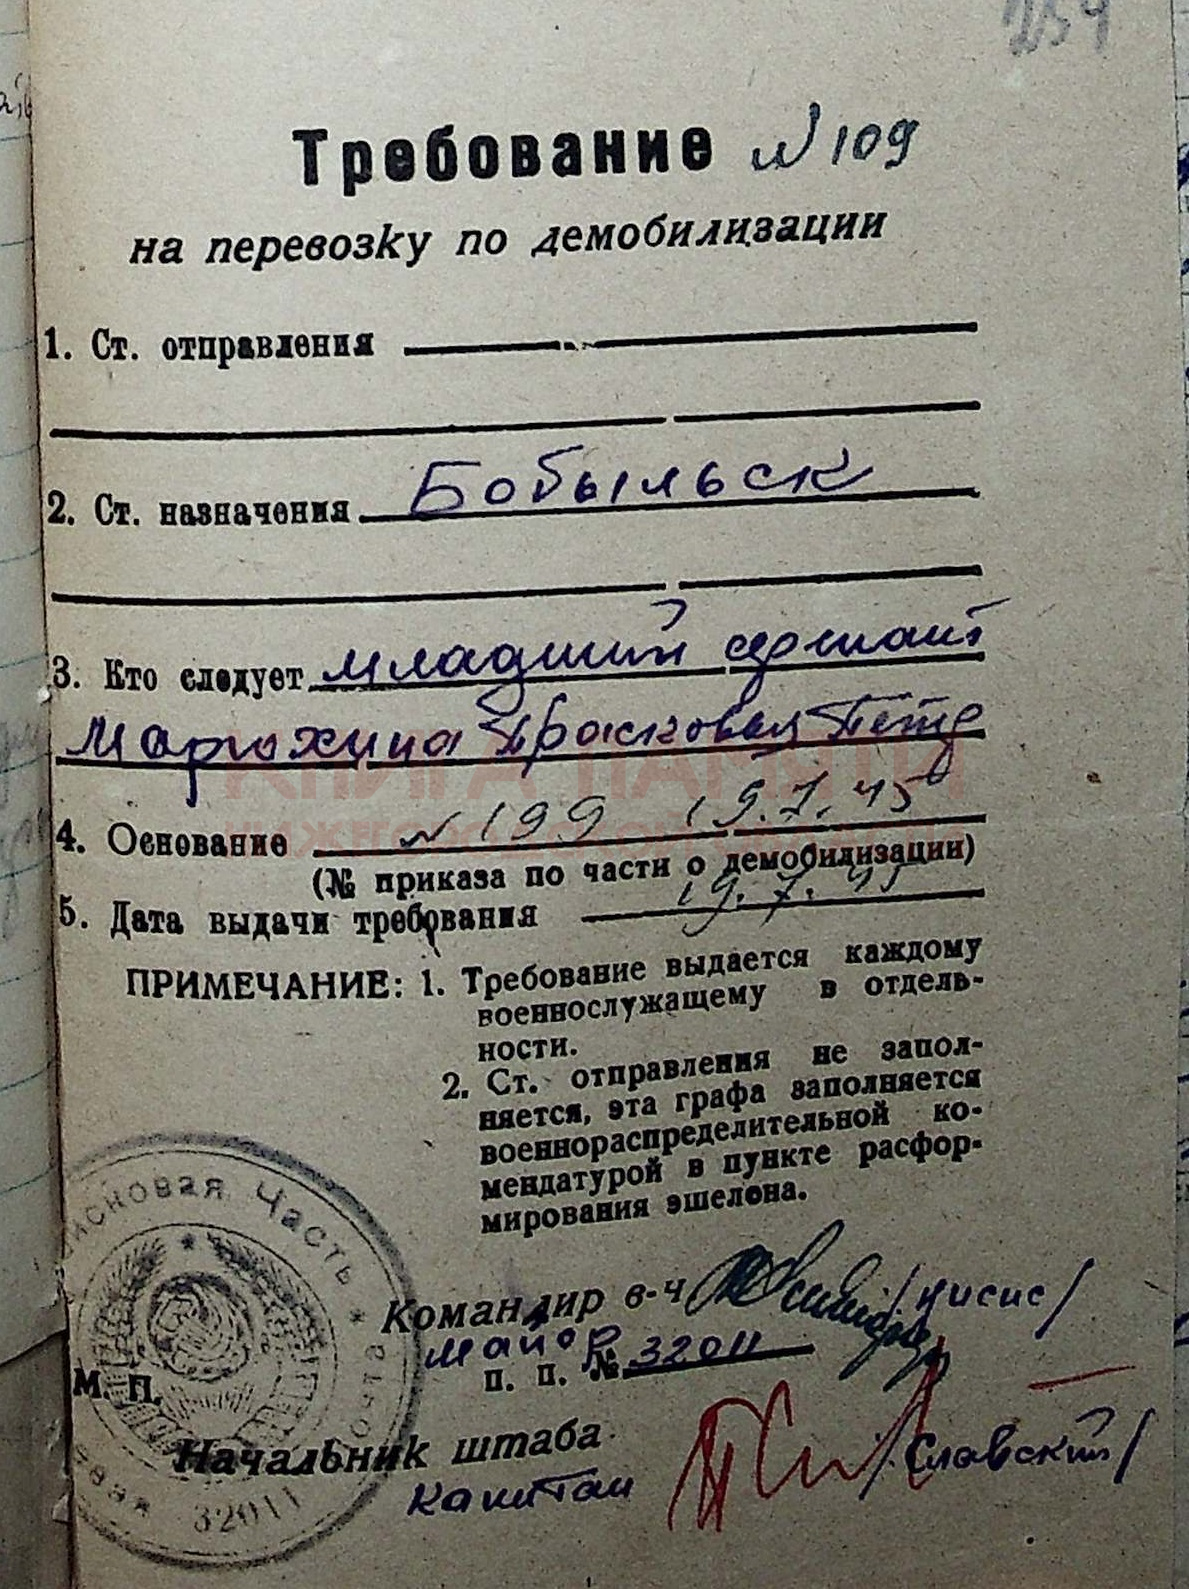 254
Требование № 109
на перевозку по демобилизации
1. Ст. отправления
2. Ст. назначения Бобыльск
3. Кто следует младший сержант
Марюхина Прасковья Петр
КНИГА ПАМЯТИ
НИЖЕГОРОДСКОЙ
4. Основание № 199 19.7.45
(№ приказа по части о демобилизации)
5. Дата выдачи требования 19.7.45
ПРИМЕЧАНИЕ: 1. Требование выдается каждому
военнослужащему в отдель-
ности.
2. Ст. отправления не запол-
няется, эта графа заполняется
военнораспределительной ко-
мендатурой в пункте расфор-
мирования эшелона.
Войсковая Часть
Командир в-ч /Цисис/
майор
п. п. № 32011
М. П.
Начальник штаба
капитан /Славский/
32011